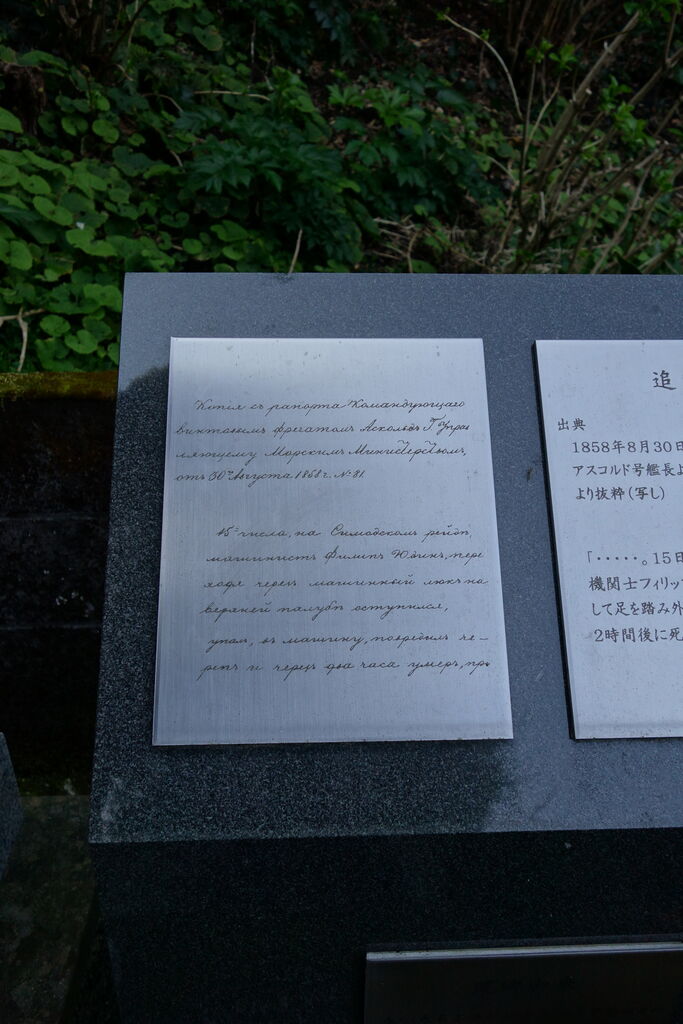 Копія съ рапорта Командующаго
винтовымъ фрегатомъ Аскольдъ Г. Упра
вляющему Морскимъ Министерствомъ,
отъ 30го Августа 1858 г. № 81.
15го числа, на Симодскомъ рейдѣ,
машинистъ Филипъ Юдинъ, пере
ходя черезъ машинный люкъ на
верхней палубѣ оступился,
упалъ, въ машину, повредилъ че-
репъ и черезъ два часа умеръ, пр
追
出典
1858年8月30日
アスコルド号艦長よ
より抜粋(写し)
「・・・・・。15日
機関士フィリッ
して足を踏み外
2時間後に死